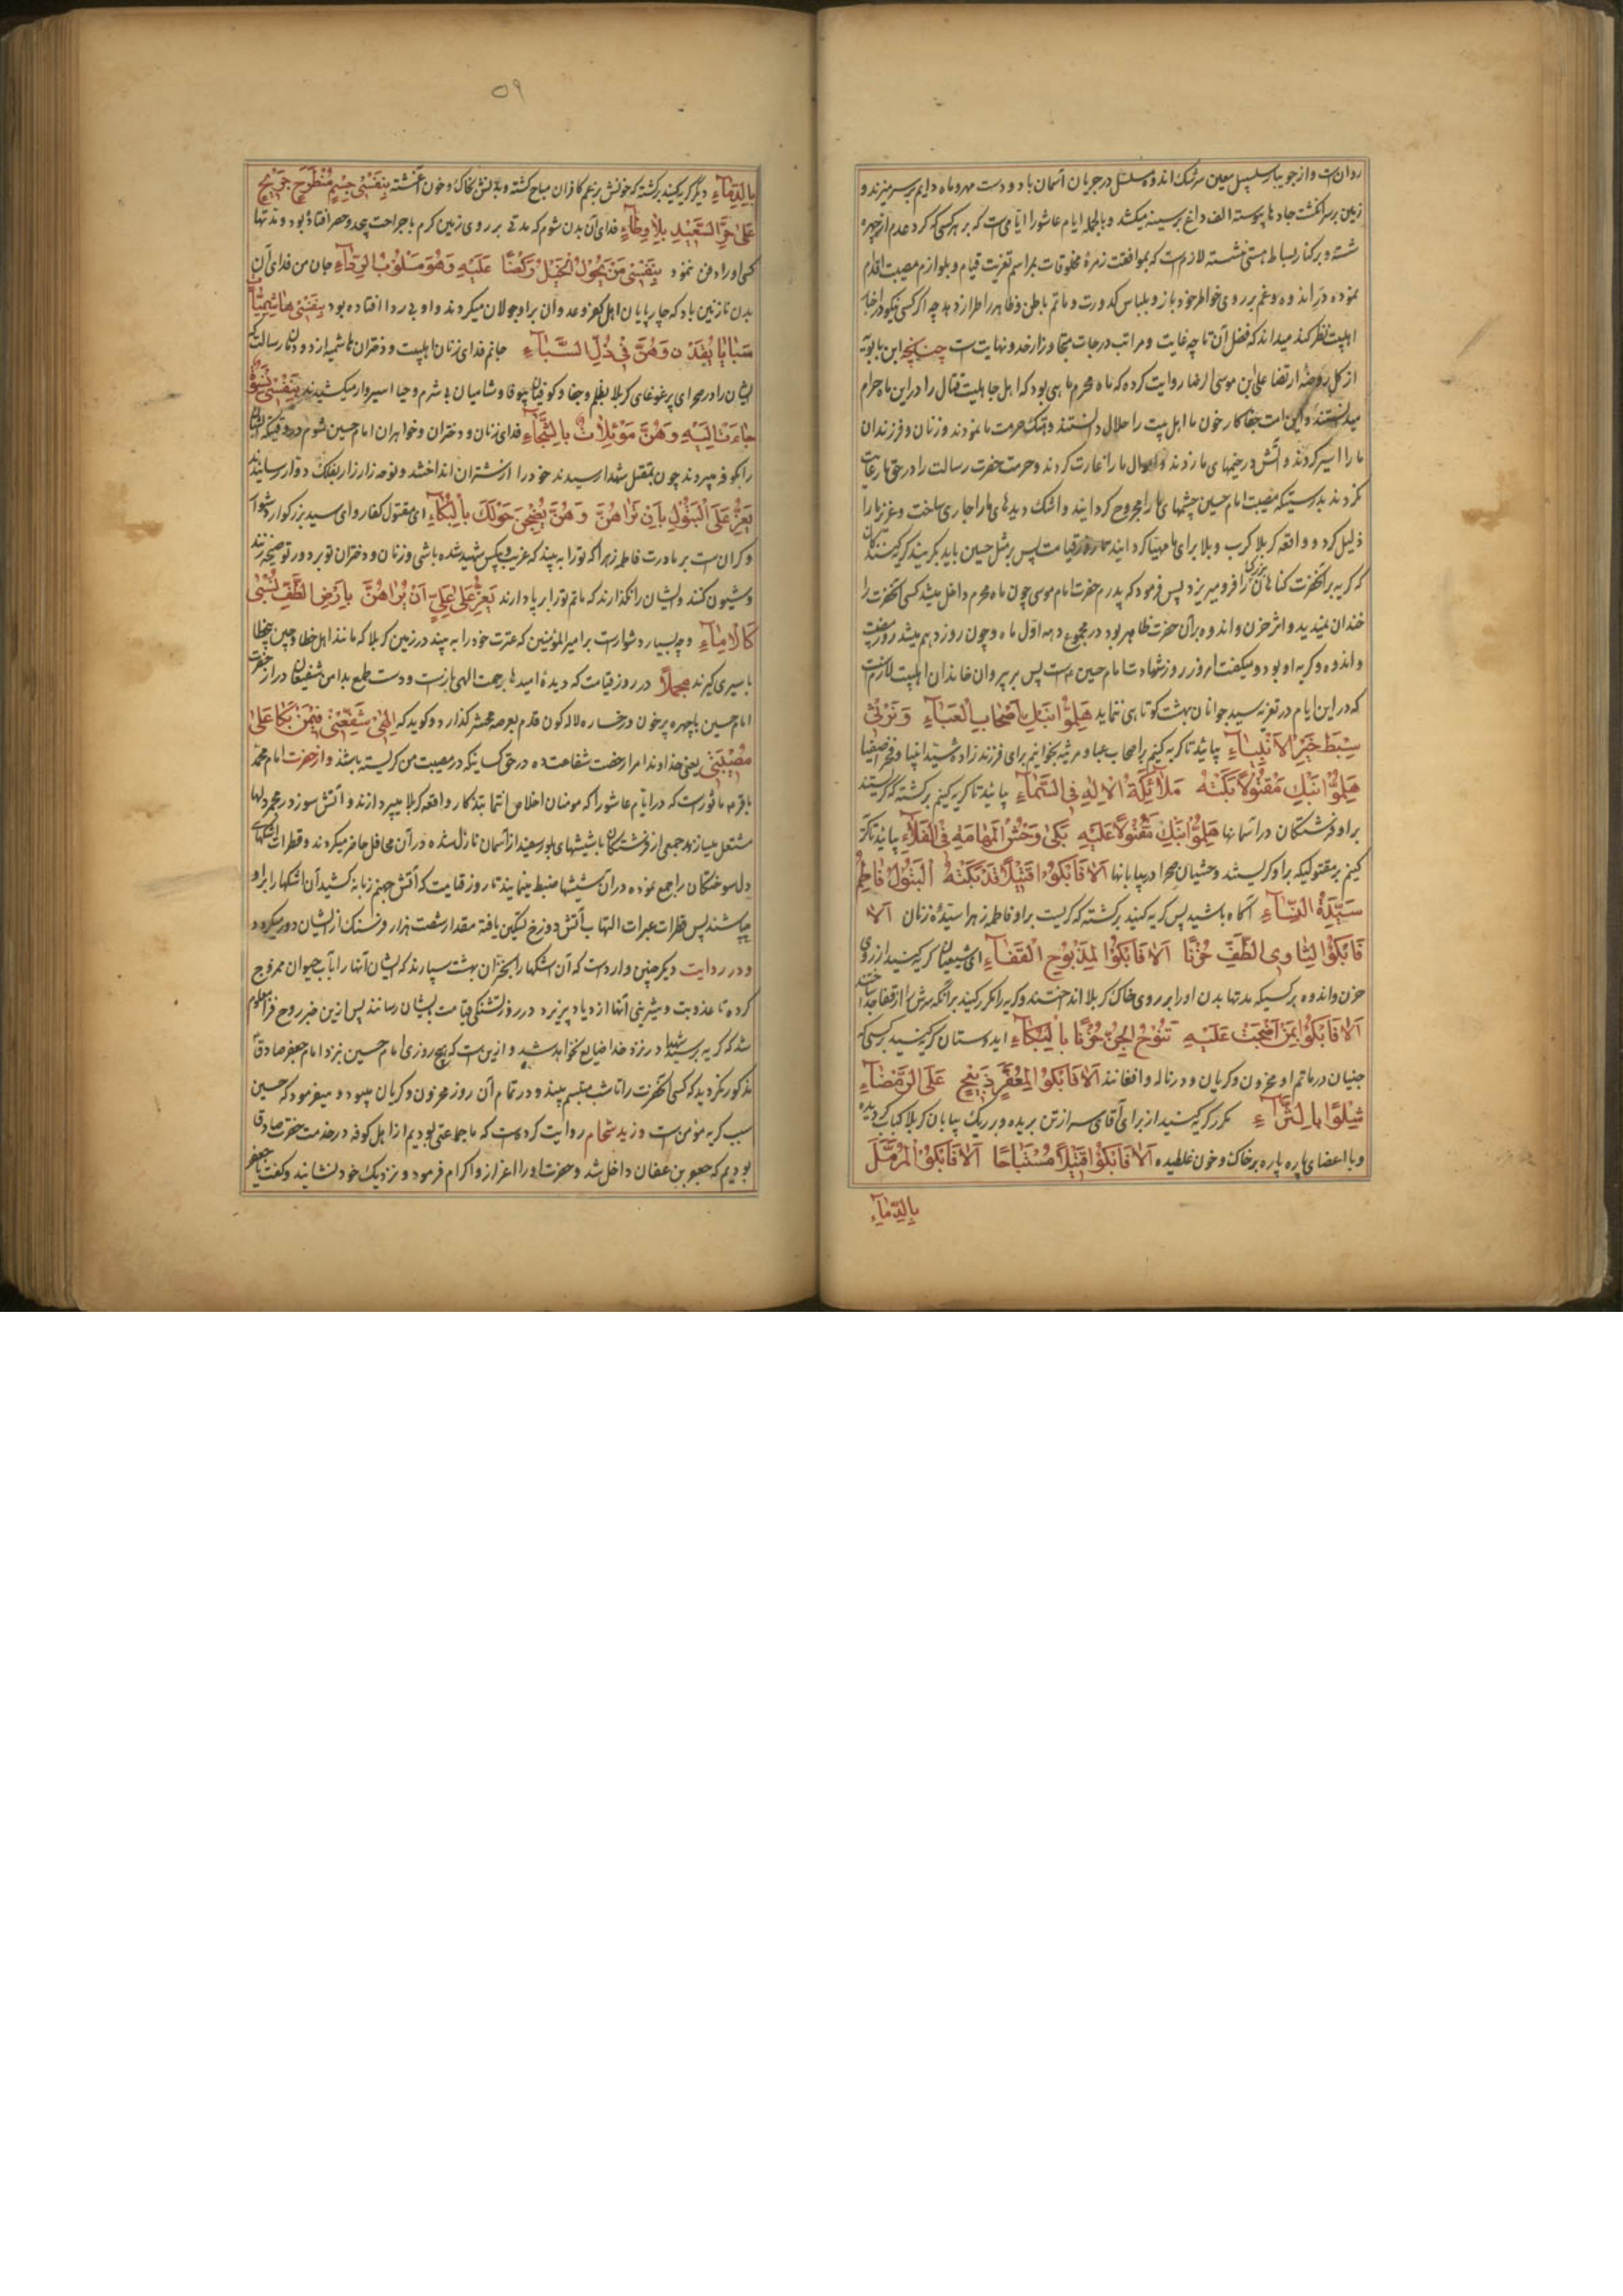 روانست و از جویبار سلسبیل معین سرشک اندوه مسلسل در جریان آسمان باد و دست مهر و ماه دایم بر سر میزند و
زمین بر سر انگشت جادها پیوسته الف داغ بر سینه میکشد و بالجمله ایام عاشورا ایامی است که بر هر کسی که گرد عدم از چهره
شسته و بر کنار بساط هستی نشسته لازمست که بموافقت زمرهٔ مخلوقات بمراسم تعزیت قیام و بلوازم مصیبت اقدام
نموده در اندوه و غم بر روی خواطر خود باز و بلباس کدورت و ماتم باطن و ظاهر را طراز دهد چه اگر کسی نیکو در اخبار
اهلبیت نظر کند میداند که فضل آن تا چه غایت و مراتب درجات متجاوز از حد و نهایت است چنانچه ابن بابویه
از گل روضهٔ ارتضا علی ابن موسی الرضا روایت کرده که ماه محرم ماهی بود که اهل جاهلیت قتال را در این ماه حرام
میدانستند و این امت جفاکار خون ما اهل بیت را حلال دانستند و هتک حرمت ما نمودند و زنان و فرزندان
ما را اسیر کردند و آتش در خیمهای ما زدند و اموال ما را غارت کردند و حرمت حضرت رسالت را در حق ما رعایت
نکردند بدرستیکه مصیبت امام حسین چشمهای ما را مجروح گردانید و اشک دیدهای ما را جاری ساخت و عزیز ما را
ذلیل کرد و واقعه کربلا کرب و بلا برای ما مهیا گردانید تا روز قیامت پس بر مثل حسین باید بگریند گریه کنندگان
که گریه بر آنحضرت گناهان بزرگ را فرو میریزد پس فرمود که پدرم حضرت امام موسی چون ماه محرم داخل میشد کسی آنحضرت را
خندان نمیدید و اثر حزن و اندوه بر آن حضرت ظاهر بود در مجموع دهه اول ماه و چون روز دهم میشد روز مصیبت
و اندوه و گریه او بود و میگفت امروز روز شهادت امام حسین است پس بر پیروان خاندان اهلبیت لازمست
که در این ایام در تعزیه سید جوانان بهشت کوتاهی ننماید هَلُمُّوا نَبْكِ أَصْحَابَ الْعَبَاءِ وَنَرْثِي
سِبْطَ خَيْرِ الْأَنْبِيَاءِ بیائید تا گریه کنیم بر اصحاب عبا و مرثیه بخوانیم برای فرزند زاده سید انبیا و فخر اصفیا
هَلُمُّوا نَبْكِ مَقْتُولًا بَكَتْهُ مَلَائِكَةُ الْإِلَهِ فِي السَّمَاءِ بیائید تا گریه کنیم بر کشته که گریستند
بر او فرشتگان در آسمانها هَلُمُّوا نَبْكِ مَقْتُولًا عَلَيْهِ بَكَى وَحْشُ الْمَهَامَهِ فِي الْفَلَاءِ بیائید تا گریه
کنیم بر مقتولیکه بر او گریستند وحشیان صحرا در بیابانها أَلَا فَابْكُوا قَتِيلًا قَدْ بَكَتْهُ الْبَتُولُ فَاطِمُ
سَيِّدَةُ النِّسَاءِ آگاه باشید پس گریه کنید بر کشته که گریست بر او فاطمه زهرا سیدهٔ زنان أَلَا
فَابْكُوا لِثَاوِي الطَّفِّ حُزْنًا أَلَا فَابْكُوا لِمَذْبُوحِ الْقَفَاءِ ای شیعیان گریه کنید از روی
حزن و اندوه بر کسیکه مدتها بدن او را بر روی خاک کربلا انداختند و گریه را مکرر کنید بر آنکه سرش را از قفا جدا ساختند
أَلَا فَابْكُوا لِمَنْ أَضْحَتْ عَلَيْهِ تَنُوحُ الْجِنُّ حُزْنًا بِالْبُكَاءِ ایدوستان گریه کنید بر کسی که
جنیان در ماتم او محزون و گریان و در ناله و افغانند أَلَا فَابْكُوا لِمُعَفَّرٍ ذَبِيحٍ عَلَى الرَّمْضَاءِ
شِلْوًا بِالثَّرَاءِ مکرر گریه کنید از برای آقای سر از تن بریده و بر ریگ بیابان کربلا کباب گردیده
و با اعضای پاره پاره بر خاک و خون غلطیده أَلَا فَابْكُوا قَتِيلًا مُسْتَبَاحًا أَلَا فَابْكُوا الْمُرَمَّلَ
بِالدِّمَاءِ
۵۹
بِالدِّمَاءِ دیگر گریه کنید بر کشته که خونش بزعم کافران مباح گشته و بدنش بخاک و خون آغشته بِنَفْسِي جِسْمَ مَنْطَرِحٍ جَرِيحٍ
عَلَى حَرِّ الصَّعِيدِ بِلَا وِطَاءِ فدای آن بدن شوم که مدتی بر روی زمین گرم با جراحت بیحد و حصر افتاده بود و مدتها
کسی او را دفن ننمود بِنَفْسِي مَنْ تَجُولُ الْخَيْلُ رَكْضًا عَلَيْهِ وَهُوَ مَسْلُوبُ الرِّدَاءِ جان من فدای آن
بدن نازنین باد که چارپایان اهل کفر و عدوان بر او جولان میکردند و او بی ردا افتاده بود بِنَفْسِي هَاشِمِيَّاتٍ
سَبَايَا يُقَدْنَ وَهُنَّ فِي ذُلِّ السِّبَاءِ جانم فدای زنان اهلبیت و دختران هاشمیه از دودمان رسالت که
ایشان را در صحرای پر غوغای کربلا بظلم و جفا و کوفیان بیوفا و شامیان بی شرم و حیا اسیروار میکشیدند بِنَفْسِي نِسْوَةٌ
جَاءَتْ إِلَيْهِ وَهُنَّ مُوَلْوِلَاتٌ بِالشَّجَاءِ فدای زنان و دختران و خواهران امام حسین شوم در وقتیکه ایشان
را بکوفه میبردند چون بمقتل شهدا رسیدند خود را از شتران انداختند و نوحه زار زار بفلک دوار رسانیدند
يَعِزُّ عَلَى الْبَتُولِ بِأَنْ تَرَاهُنَّ وَهُنَّ يَضْجِجْنَ حَوْلَكَ بِالْبُكَاءِ ای مقتول کفار و ای سید بزرگوار دشوار
و گرانست بر مادرت فاطمه زهرا که تو را به بیند که غریب و بیکس شهید شده باشی و زنان و دختران تو بر دور تو صیحه زنند
و شیون کنند و ایشان را نگذارند که ماتم تو را بر پا دارند يَعِزُّ عَلَى عَلِيٍّ أَنْ يَرَاهُنَّ بِأَرْضِ الطَّفِّ تُسْبَى
كَالْإِمَاءِ و چه بسیار دشوارست بر امیر المؤمنین که عترت خود را به بیند در زمین کربلا که مانند اهل خطا و چین بیخطا
باسیری گیرند مجملاً در روز قیامت که دیدهٔ امیدها برحمت الهی بازست و دست طمع بدامن شفیعان دراز حضرت
امام حسین با چهره پر خون و رخساره لاله گون قدم بعرصه محشر گذارد و گوید که إِلَهِي شَفِّعْنِي فِيمَنْ بَكَا عَلَى
مُصِيبَتِي یعنی خداوندا مرا رخصت شفاعت ده در حق کسانیکه در مصیبت من گریسته باشند و از حضرت امام محمد
باقر ع مأثورست که در ایام عاشورا که مومنان اخلاص انتما بتذکار واقعه کربلا میپردازند و آتش سوز در مجمر دلها
مشتعل میسازند جمعی از فرشتگان با شیشهای بلور سفید از آسمان نازل شده در آن محافل حاضر میگردند و قطرات اشکهای
دل سوختگان را جمع نموده در آن شیشها ضبط مینمایند تا روز قیامت که آتش جهنم زبانه کشید آن اشکها را بر او
میپاشند پس قطرات عبرات التهاب آتش دوزخ تسکین یافته مقدار شصت هزار فرسنگ از ایشان دور میگردد
و در روایت دیگر چنین واردست که آن اشکها را بخزان بهشت سپارند که ایشان آنها را بآب حیوان ممزوج
کرده تا عذوبت و شیرینی آنها ازدیاد پذیرد در روز تشنگی قیامت بایشان رسانند پس ازین خبر روح فزا معلوم
شد که گریه بر سید شهدا در نزد خدا ضایع نخواهد شد و ازین است که هیچ روزی امام حسین نزد امام جعفر صادق
مذکور نگردید که کسی آنحضرت را تا شب متبسم بیند و در تمام آن روز محزون و گریان میبود و میفرمود که حسین
سبب گریه مؤمن است و زید شحام روایت کرده است که ما جماعتی بودیم از اهل کوفه در خدمت حضرت صادق
بودیم که جعفر بن عفان داخل شد و حضرت او را اعزاز و اکرام فرمود و نزدیک خود نشانید و گفت یا جعفر